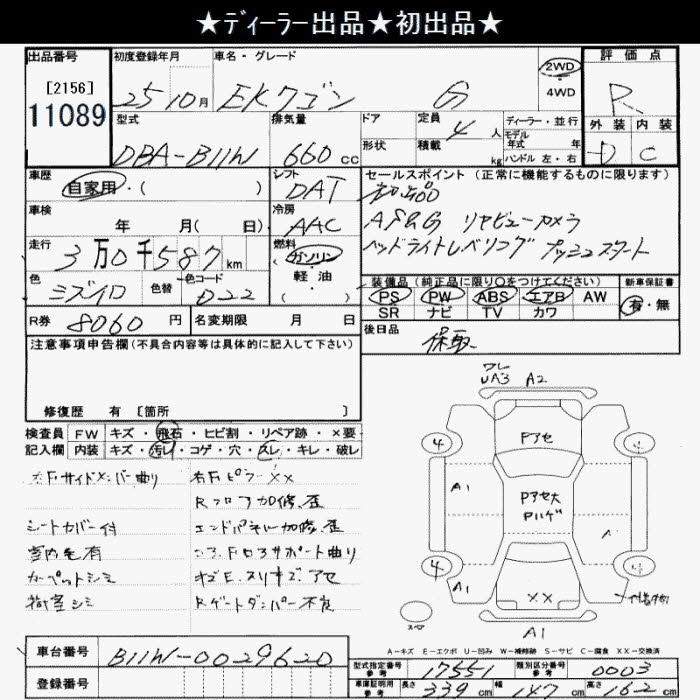 ★ディーラー出品★初出品★
出品番号 初度登録年月 車名・グレード 2WD 4WD 評価点
[2156]
11089
25 10月 EKワゴン G R
型式 排気量 ドア 定員 4 人 ディーラー・並行 外装 内装
DBA-B11W 660 cc 形状 積載 kg モデル年式 年 ハンドル 左・右 D C
車歴 自家用・( ) シフト DAT セールスポイント (正常に機能するものに限ります)
初出品
車検 年 月( 日) 冷房 AAC AS&G リヤビューカメラ
走行 3万0千587km 燃料 ガソリン 軽油 ( ) ヘッドライトレベリング プッシュスタート
色 ミズイロ 色替 色コード D22
装備品(純正品に限り○をつけてください) 新車保証書
PS PW ABS エアB AW 有・無
SR ナビ TV カワ
R券 8060 円 名変期限 月 日 後日品 保取
注意事項申告欄(不具合内容等は具体的に記入して下さい)
修復歴 有 [箇所 ]
検査員 FW キズ・飛石・ヒビ割・リペア跡・×要
記入欄 内装 キズ・汚レ・コゲ・穴・スレ・キレ・破レ
右Fサイドメンバー曲り 右Fピラー XX
Rフロア加修.歪
シートカバー付 エンドパネル加修.歪
室内毛有 コアサポート曲り
カーペットシミ キズE.スリキズ.アセ
荷室シミ Rゲートダンパー不良
ワレ
UA3 A2
Fアセ
4 4
A1 Fアセ大
Fハゲ
4 4
A1 XX
スペア
A1
A-キズ E-エクボ U-凹み W-補修跡 S-サビ C-腐食 XX-交換済
車台番号 B11W-0029620
登録番号
型式指定番号 参考 17551 類別区分番号 参考 0003
車庫証明用 参考 長さ 339 cm 幅 147 cm 高さ 162 cm